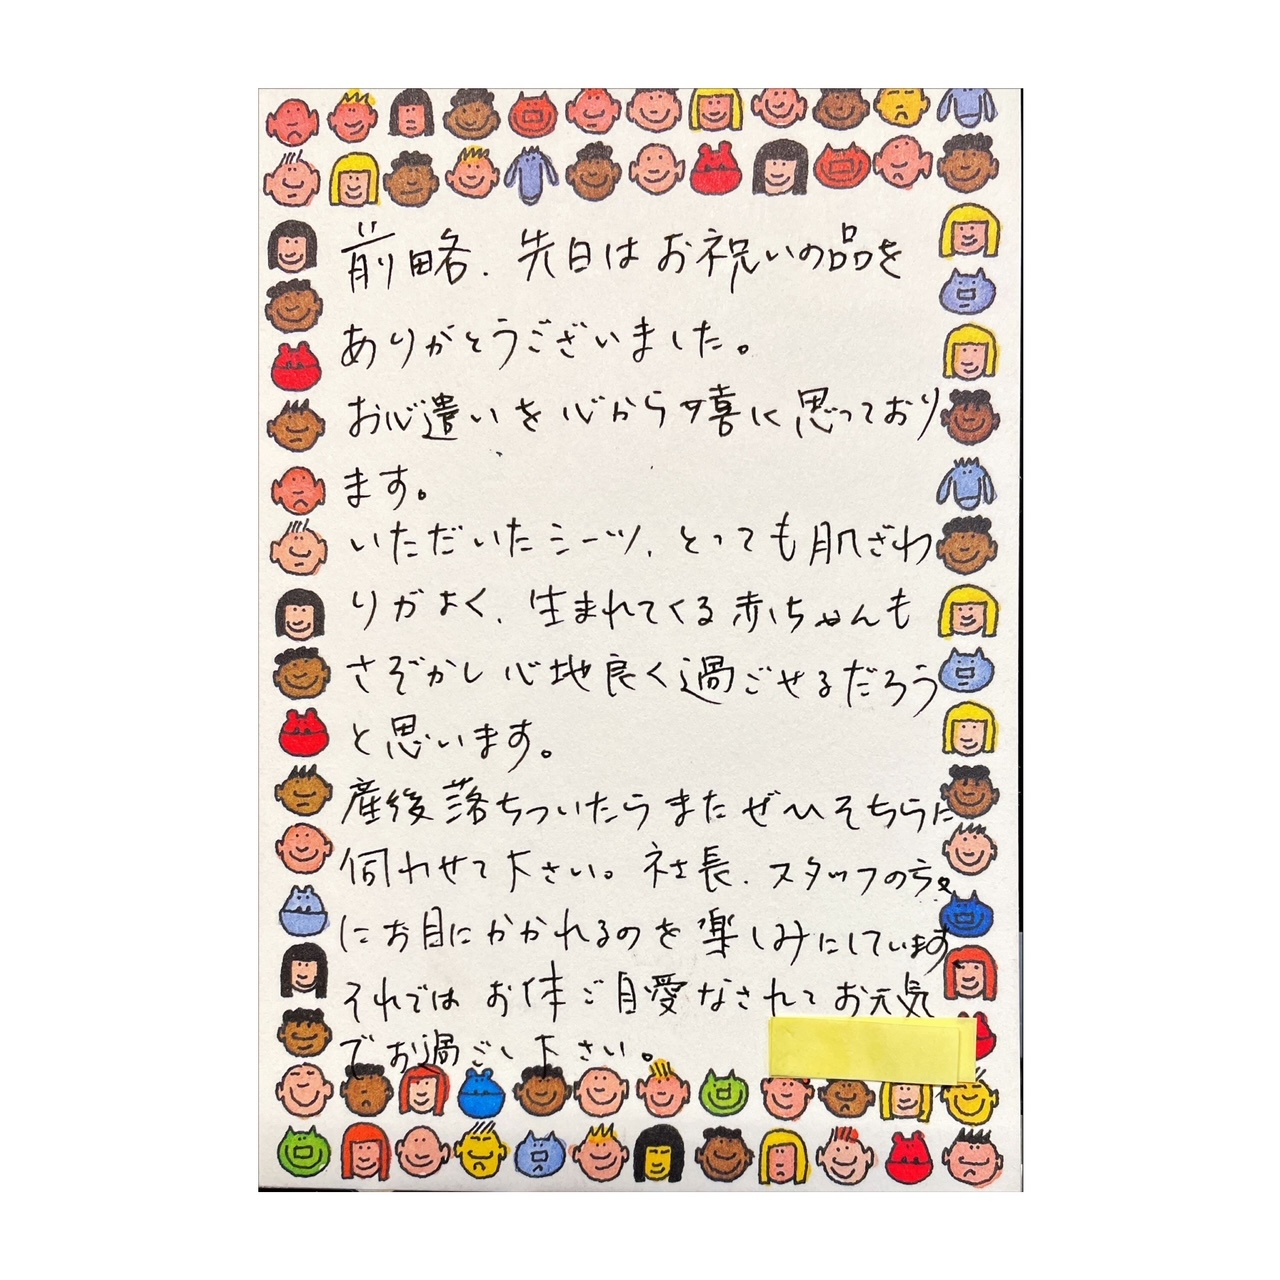 前略、先日はお祝いの品を
ありがとうございました。
お心遣いを心から嬉に思っており
ます。
いただいたシーツ、とっても肌ざわ
りがよく、生まれてくる赤ちゃんも
さぞかし心地良く過ごせるだろう
と思います。
産後落ちついたらまたぜひそちらに
伺わせて下さい。社長、スタッフの方々
にお目にかかれるのを楽しみにしています。
それではお体ご自愛なされてお元気
でお過ごし下さい。